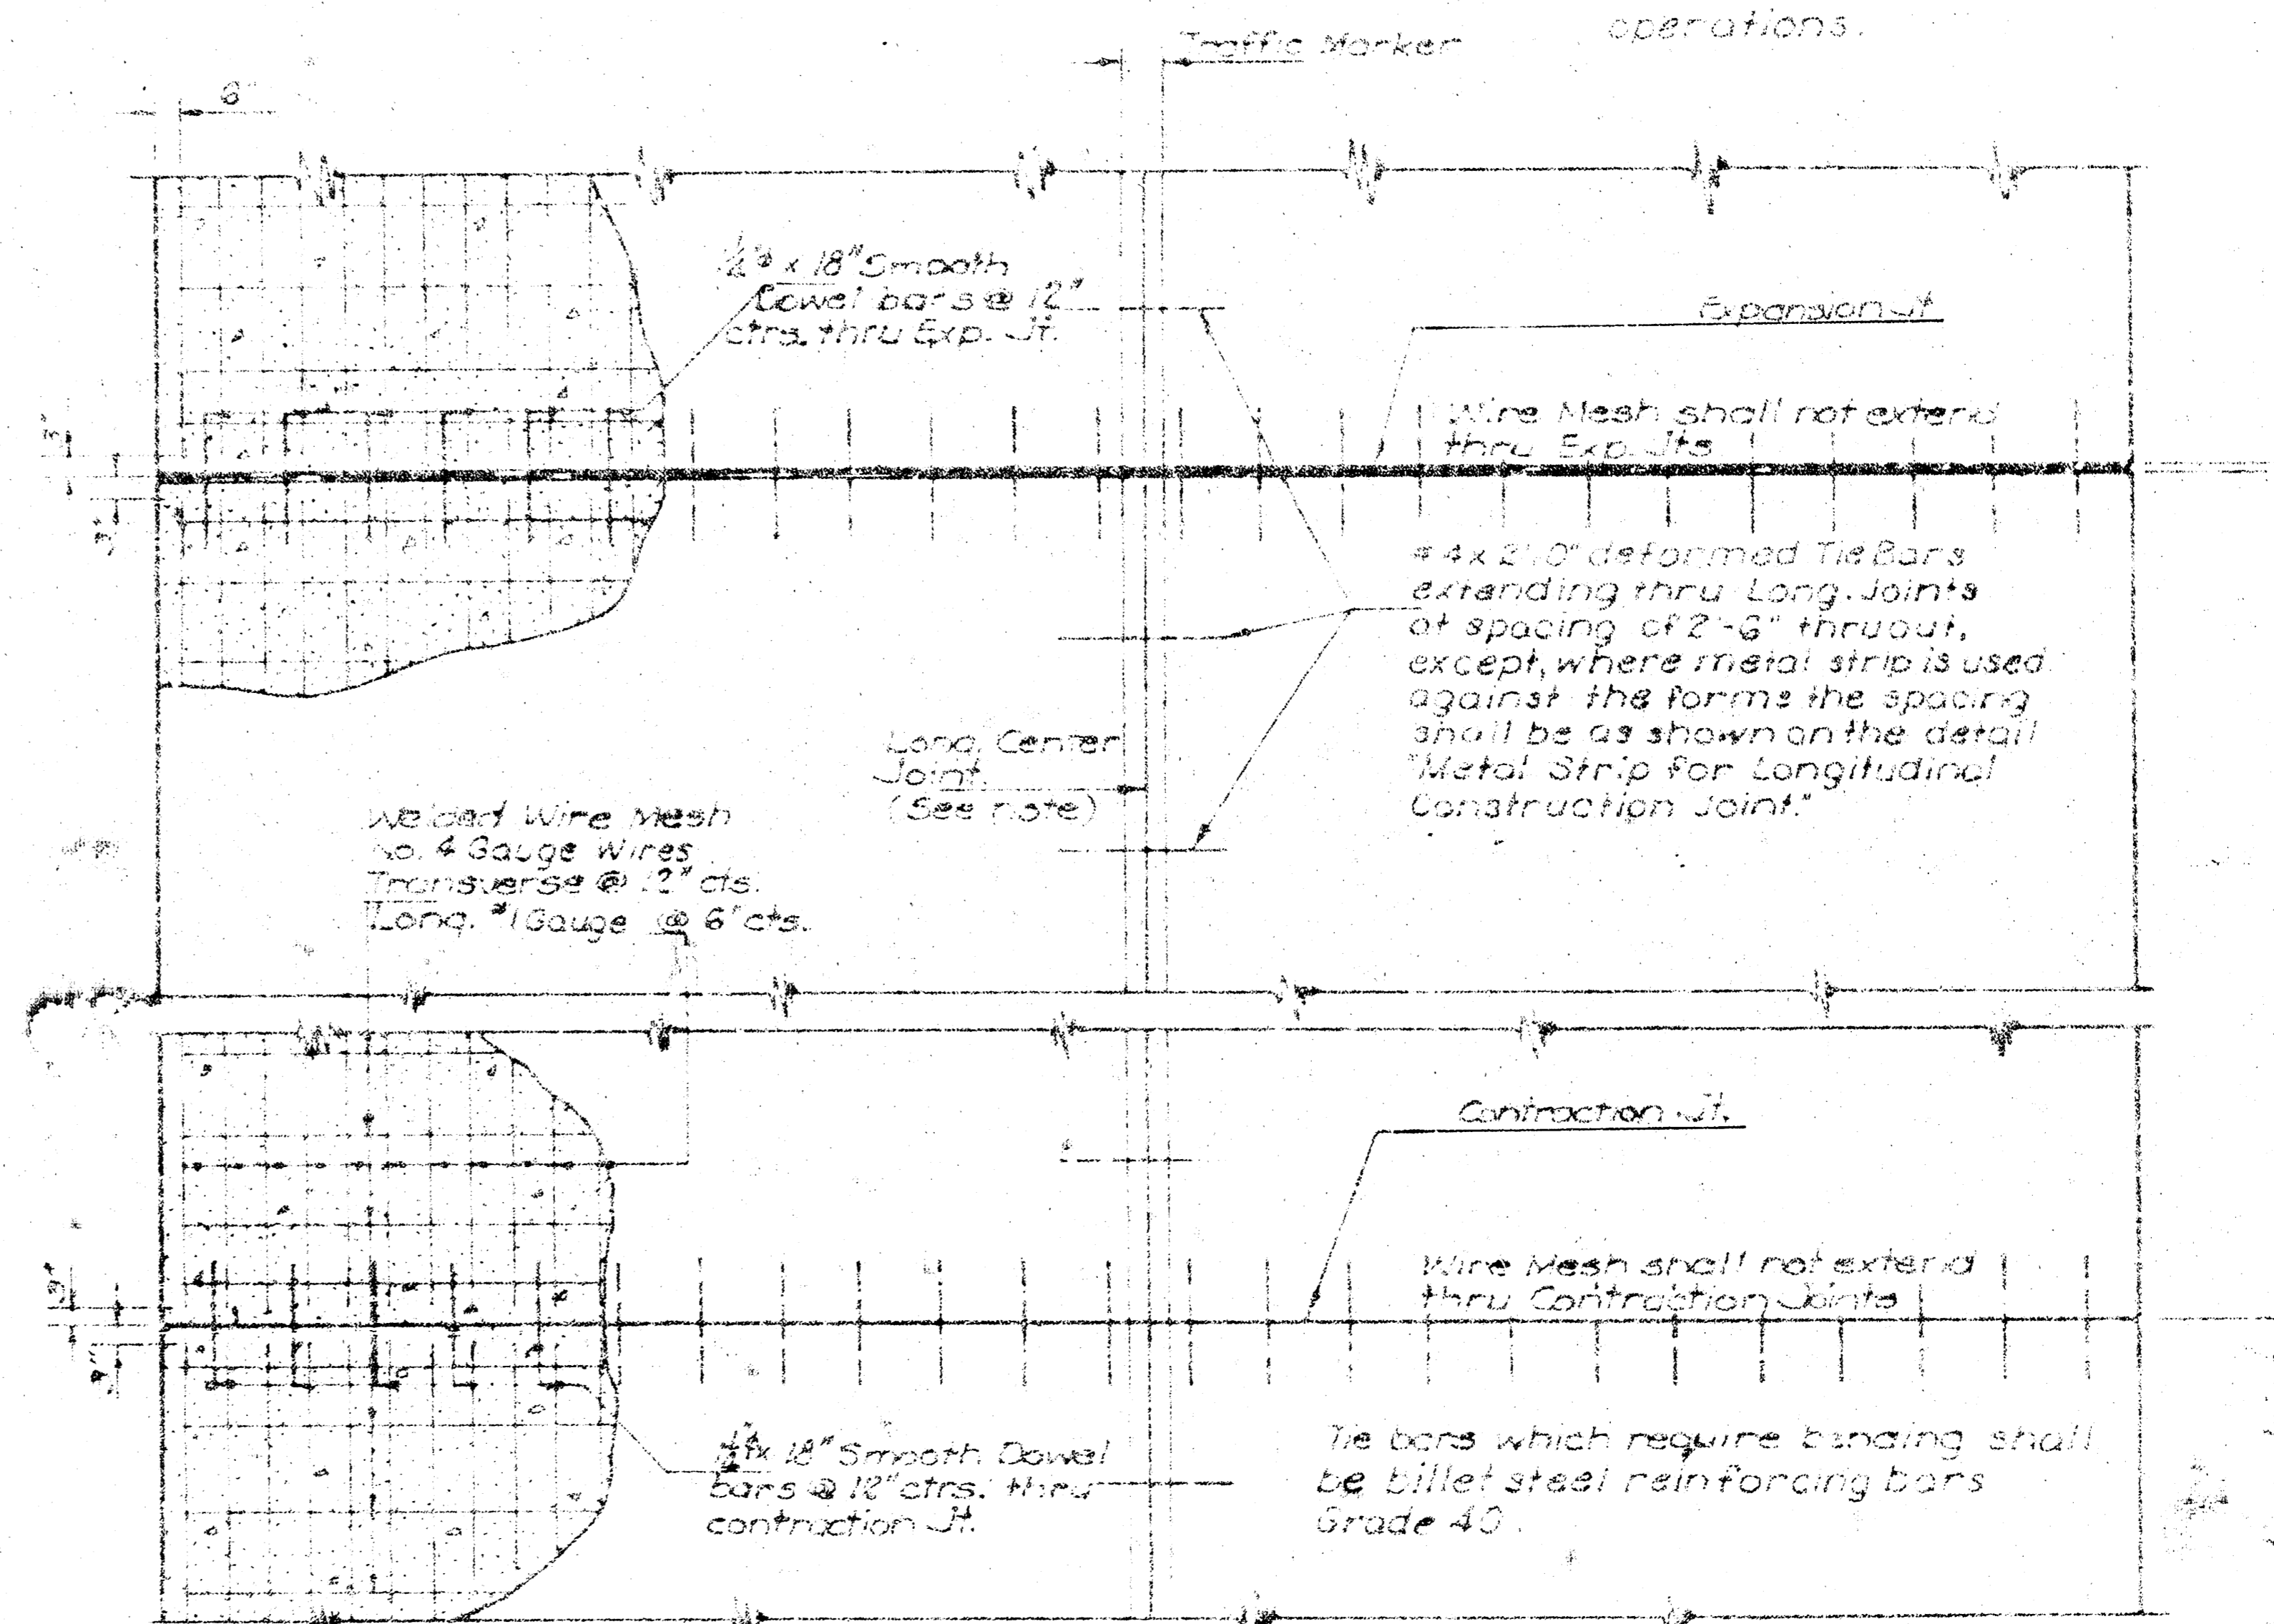 operations.
Traffic Marker
6"
x 18" Smooth
Dowel bars @ 12"
ctrs. thru Exp. Jt.
Expansion Jt
Wire Mesh shall not extend
thru Exp. Jts
#4 x 2'-0" deformed Tie Bars
extending thru Long. Joints
at spacing of 2'-6" thruout,
except, where metal strip is used
against the forms the spacing
shall be as shown on the detail
"Metal Strip for Longitudinal
Construction Joint."
Long. Center
Joint.
(See note)
Welded Wire Mesh
No. 4 Gauge Wires
Transverse @ 12" cts.
Long. #1 Gauge @ 6" cts.
Contraction Jt.
Wire Mesh shall not extend
thru Contraction Joints
x 18" Smooth Dowel
bars @ 12" ctrs. thru
contraction Jt.
Tie bars which require bending shall
be billet steel reinforcing bars
Grade 40.